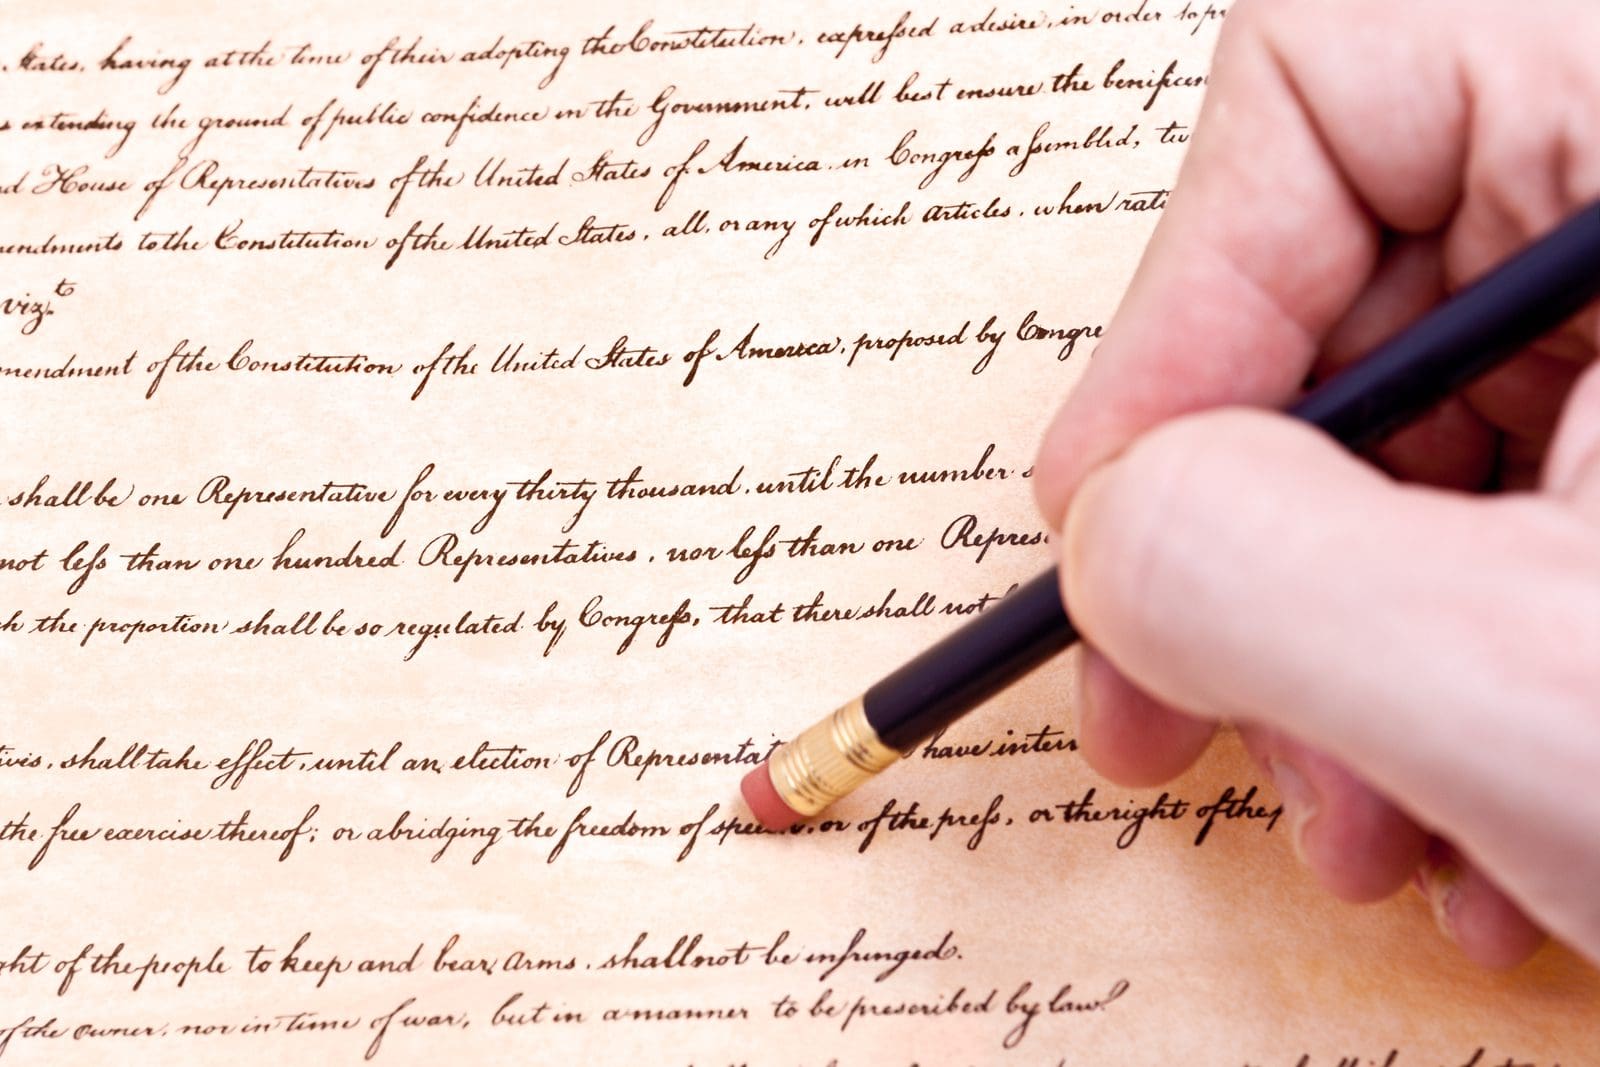 States, having at the time of their adopting the Constitution, expressed a desire, in order to pr
extending the ground of public confidence in the Government, will best ensure the benificen
House of Representatives of the United States of America in Congress assembled, tw
endments to the Constitution of the United States, all, or any of which articles, when rati
viz.t
mendment of the Constitution of the United States of America, proposed by Congre
shall be one Representative for every thirty thousand, until the number
not less than one hundred Representatives, nor less than one Repres
the proportion shall be so regulated by Congress, that there shall not
shall take effect, until an election of Representat have inter
the free exercise thereof; or abridging the freedom of spee or of the press, or the right of the p
ght of the people to keep and bear arms, shall not be infringed.
of the owner, nor in time of war, but in a manner to be prescribed by law.